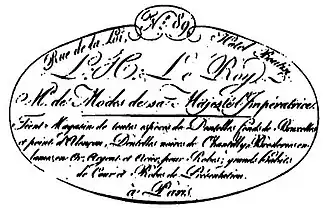 N.º 89
Rue de la Loi, Hôtel
L. H. Le Roy,
M.d de Modes de sa Majesté l'Impératrice
Tient Magasin de toutes espèces de Dentelles fonds de Bruxelles
et point d'Alençon, Dentelles noires de Chantilly, Broderies en
lames, en Or, Argent et Acier, pour Robes; grands habits
de Cour et Robes de Présentation.
à Paris.